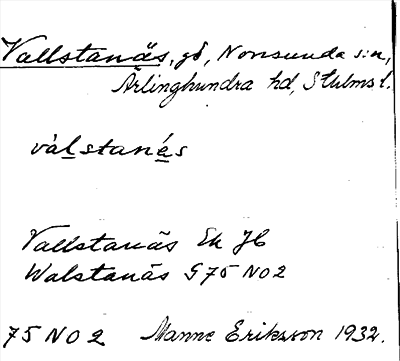 Vallstanäs, gd, Norrsunda s:n,
Ärlinghundra hd, Sthlms l.
válstanés
Vallstanäs Ek JB
Walstanäs G 75 NO 2
75 NO 2 Manne Eriksson 1932.